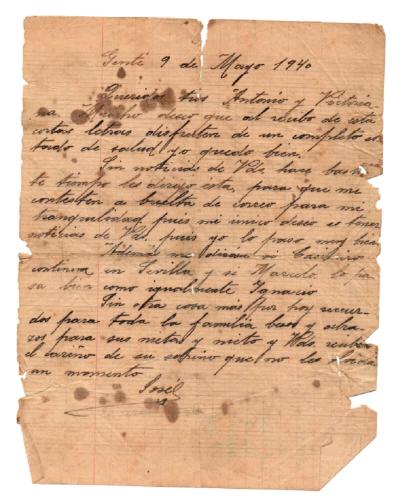 9 de Mayo 1940
Queridos tios Antonio y Victoria
na Mucho deseo que al recibo de esta
cortas letras disfruten de un completo es
tado de salud yo quedo bien.
Sin noticias de Vds. hace bastan
te tiempo les dirijo esta, para que me
contesten a buelta de correo para mi
tranquilidad pues mi unico deseo es tener
noticias de Vds. pues yo lo paso muy bien
Ademas me diran si Casimiro
continua en Sevilla y si Marcelo lo pa
sa bien como igualmente Ignacio
Sin otra cosa mas por hoy recuer
dos para toda la familia besos y abra
zos para sus nietas y nieto y Vds. reciben
el cariño de su sobrino que no les olvida
un momento
José